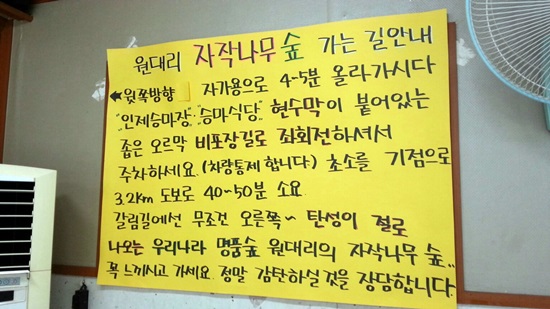 원대리 자작나무 숲 가는 길안내
← 윗쪽방향 자가용으로 4~5분 올라가시다
"인제승마장", "승마식당" 현수막이 붙어있는
좁은 오르막 비포장길로 좌회전하셔서
주차하세요. (차량통제 합니다) 초소를 기점으로
3.2km 도보로 40~50분 소요
갈림길에선 무조건 오른쪽~ 탄성이 절로
나오는 우리나라 명품숲 원대리의 자작나무 숲..
꼭 느끼시고 가세요. 정말 감탄하실것을 장담합니다.